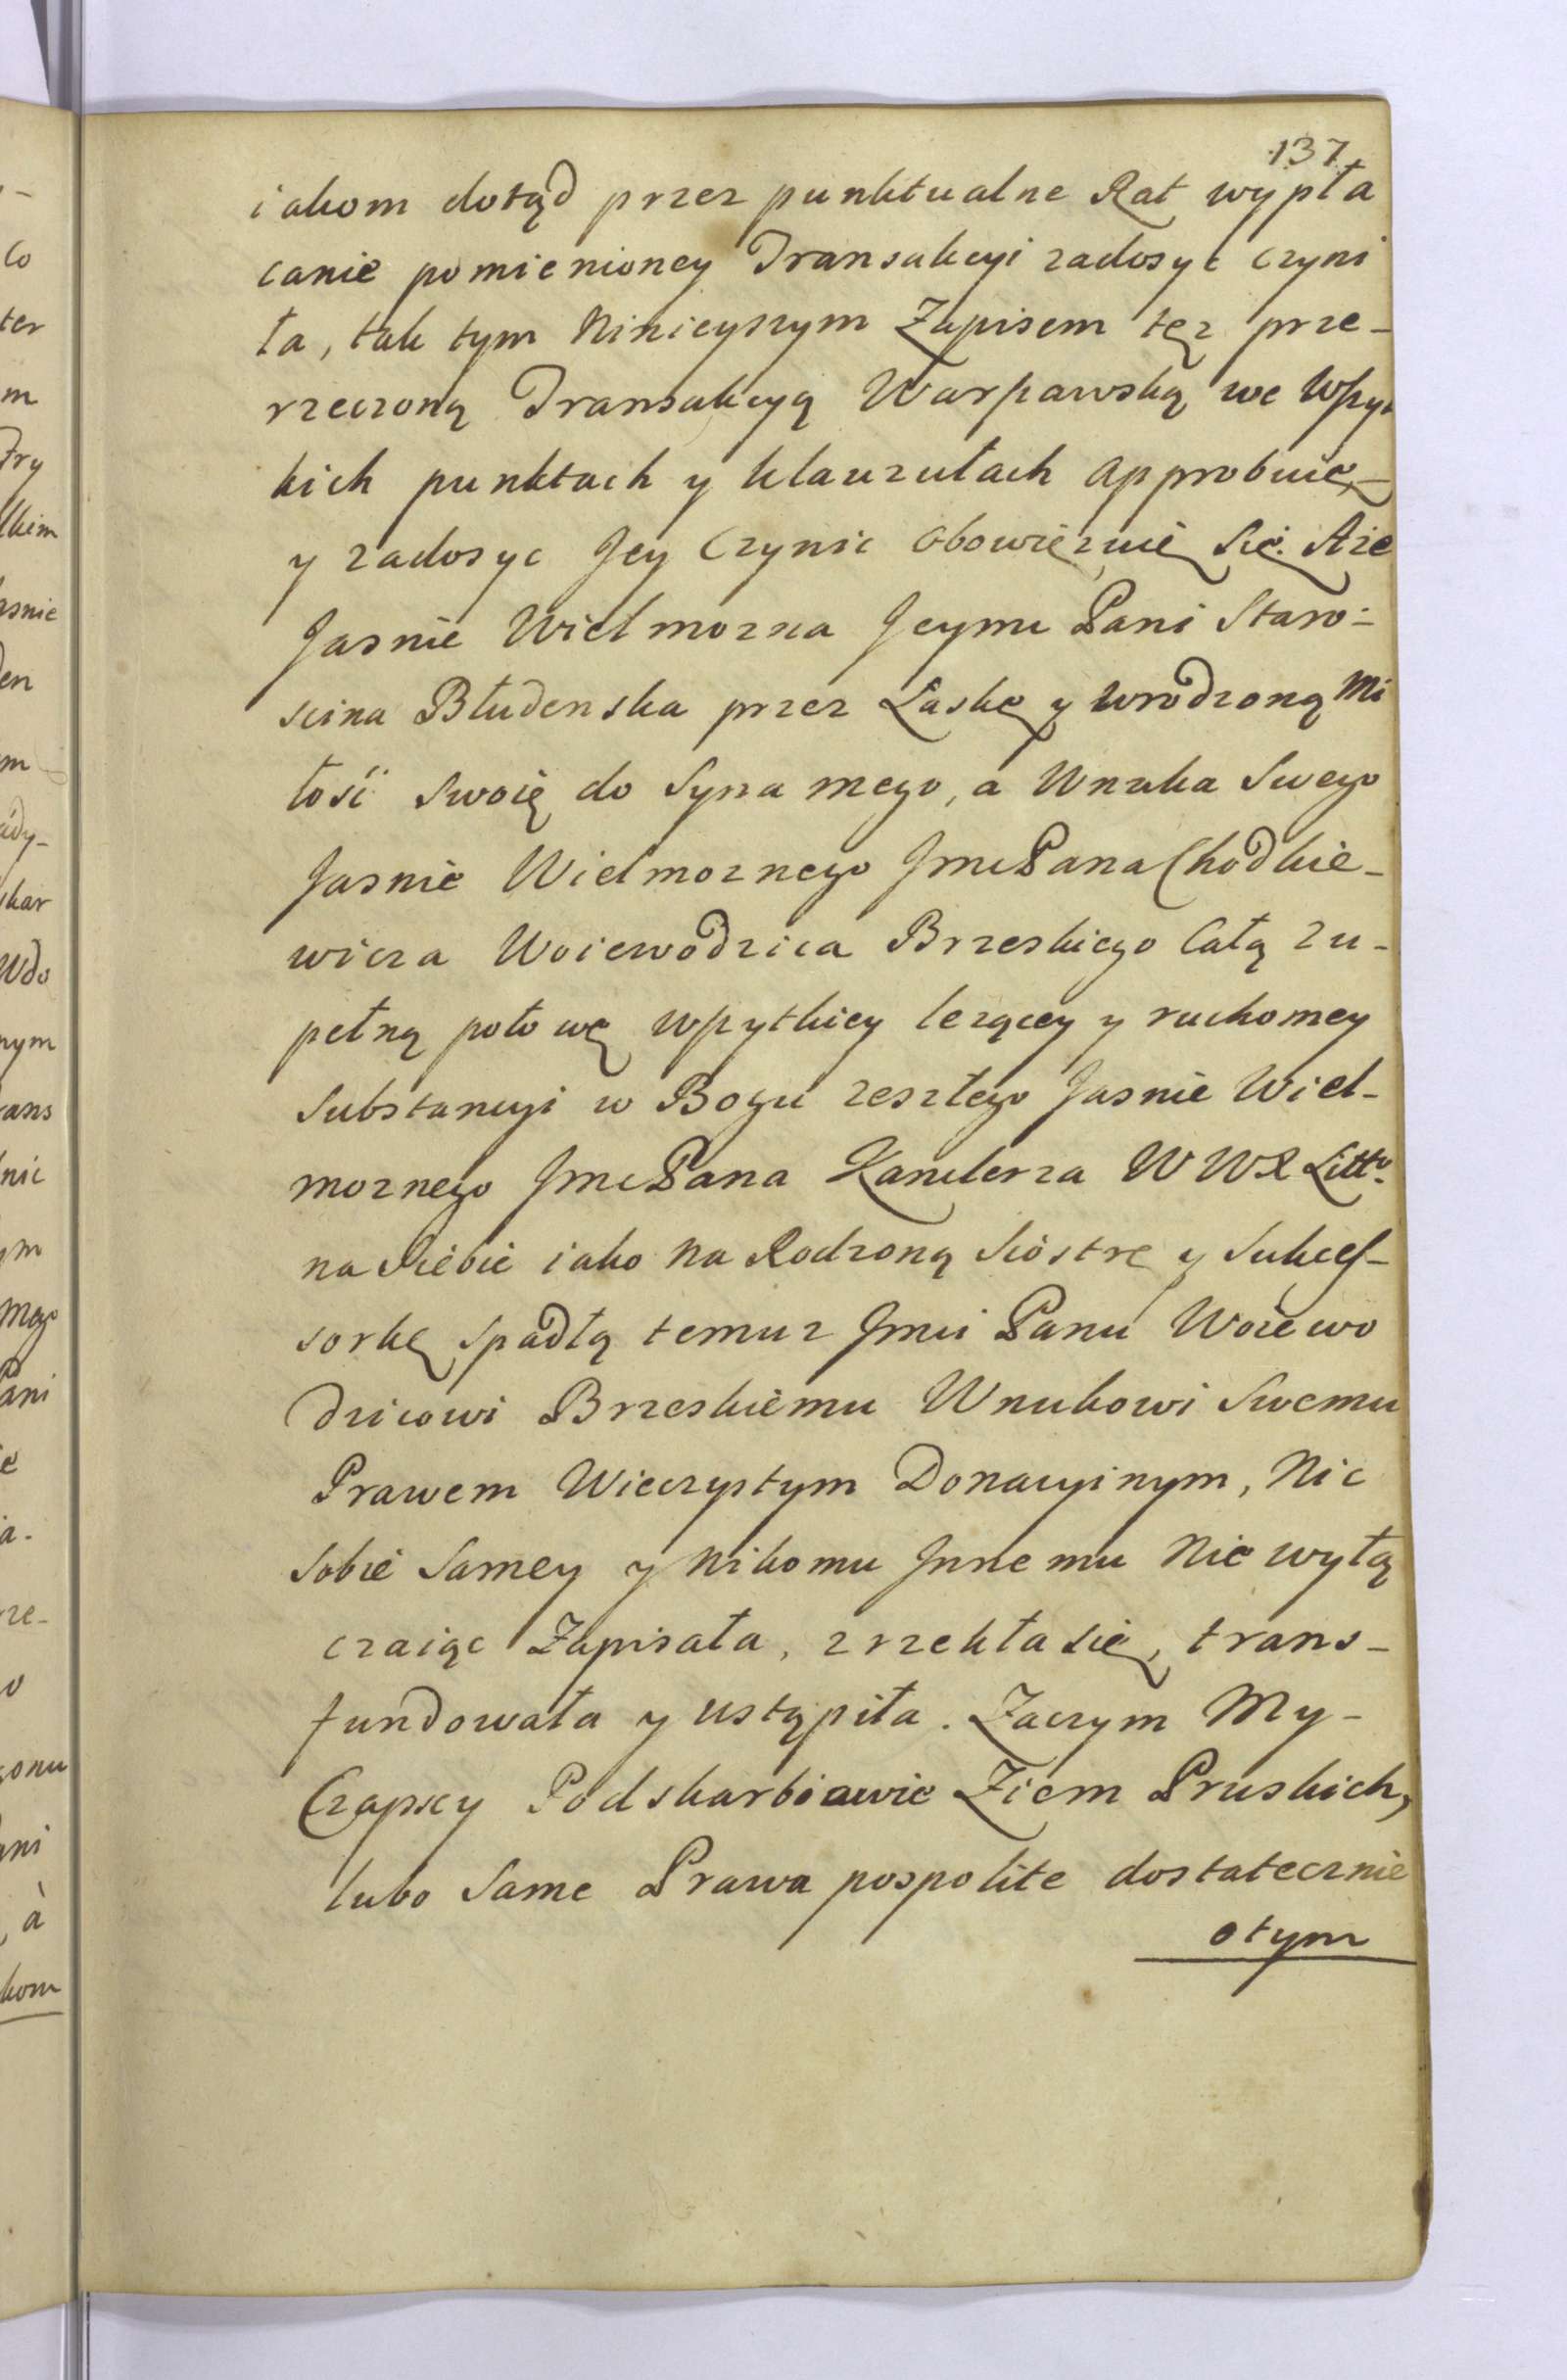 137
iakom dotąd przez punktualne Rat wypła
canie pomienioney Transakcyi zadosyc czyni
ła, tak tym Ninieyszym Zapisem tęz prze-
rzeczoną Transakcyą Warszawską we Wszyt
kich punktach y klauzułach approbuię,-
y zadosyc Jey Czynic obowięzuię Się. Aże
Jasnie Wielmozna Jeymc Pani Staro-
scina Błudenska przez Łaskę y wrodzoną Mi
łość Swoię do Syna mego, a Wnuka Swego
Jasnie Wielmoznego JmcPana Chodkie-
wicza Woiewodzica Brzeskiego Całą zu-
pełną połowę wszytkiey lezącey y ruchomey
Substancyi w Bogu zeszłego Jasnie Wiel-
moznego JmcPana Kanclerza W W X Litto.
na Siebie iako na Rodzoną Siostrę y Sukces-
sorkę spadłą temuz Jmci Panu Woiewo
dzicowi Brzeskiemu Wnukowi Swemu
Prawem Wieczystym Donacyinym, Nic
Sobie Samey y Nikomu Innemu Nie wyłą
czaiąc Zapisała, zrzekła się, trans-
fundowała y ustąpiła. Zaczym My-
Czapscy Podskarbiowie Ziem Pruskich,
lubo Same Prawa pospolite dostatecznie
otym
co
ter
m
try
lkim
asnie
den
m
ady-
skar
Wdo
nym
rans
nic
ym
Mego
Pani
ie
ia.
rze-
o
gonu
ani
, à
kom